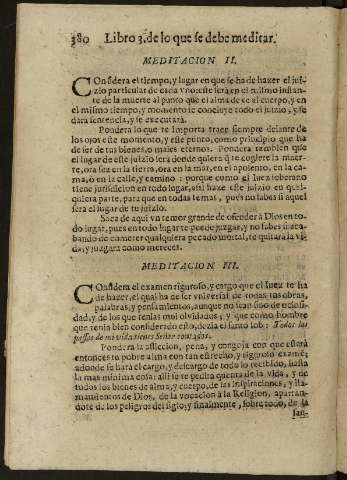 380 Libro 3. de lo que se debe meditar.
MEDITACION II.
COnsidera el tiempo, y lugar en que se ha de hazer el jui-
zio particular de cada vno: este será en el mismo instan-
te de la muerte al punto que el alma dexe al cuerpo, y en
el mismo tiempo, y momento se concluye todo el juizio, y se
dará sentencia, y se executará.
Pondera lo que te importa traer siempre delante de
los ojos este momento, y este punto, como principio que ha
de ser de tus bienes, o males eternos. Pondera tambien que
el lugar de este juizio será donde quiera que te cogiere la muer-
te, ora sea en la tierra, ora en la mar, en el aposento, en la ca-
ma, ò en la calle, y camino: porque como el Iuez soberano
tiene jurisdicion en todo lugar, assi haze este juizio en qual-
quiera parte, para que en todas temas, pues no sabes si aquel
será el lugar de tu juizio.
Saca de aqui vn temor grande de ofender à Dios en to-
do lugar, pues en todo lugar te puede juzgar, y no sabes si aca-
bando de cometer qualquiera pecado mortal, te quitará la vi-
da, y juzgará como mereces.
MEDITACION III.
COnsidera el examen riguroso, y cargo que el Iuez te ha
de hazer, el qual ha de ser vniversal de todas tus obras,
palabras, y pensamientos, aunque no sean sino de ociosi-
dad, y de los que tenias mui olvidados; y que como hombre
que tenia bien considerado esto, dezia el santo Iob: Todos los
passos de mi vida tienes Señor contados.
Pondera la afliccion, pena, y congoja con que estará
entonces tu pobre alma con tan estrecho, y riguroso examẽ;
adonde se hará el cargo, y descargo de todo lo recibido, hasta
la mas minima cosa: alli se te pedira quenta de la vida, y de
todos los bienes de alma, y cuerpo, de las inspiraciones, y lla-
mamientos de Dios, de la vocacion à la Religion, apartan-
dote de los peligros del siglo, y finalmente, sobre todo, de la
san-